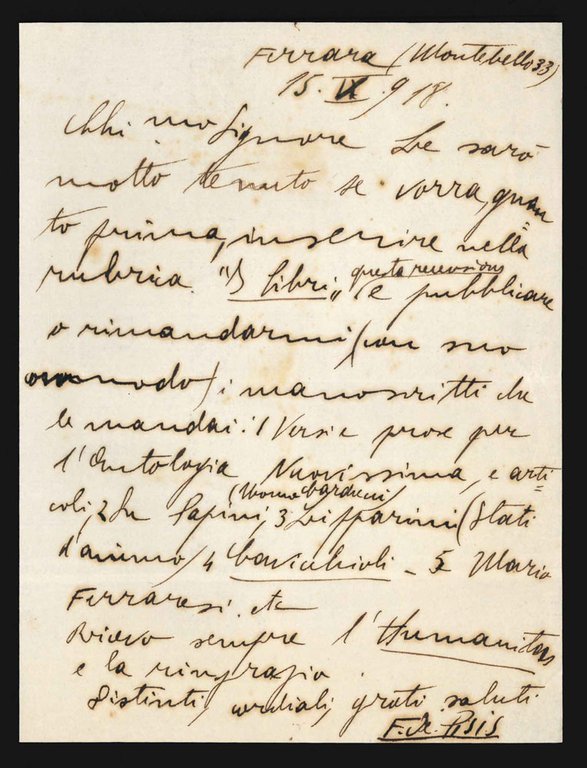 Ferrara (Montebello 33)
15. IX. 918.
Chi.mo Signore Le sarò
molto tenuto se vorrà, quan
to prima, inserire nella
rubrica "I libri„ questa recensione
(e pubblicare
o rimandarmi (con suo
comodo) i manoscritti che
le mandai: 1 Versi e prose per
l'Antologia Nuovissima, e arti=
coli, 2 Su Papini,
3 Lipparini (Stati
d'animo) 4 Cavicchioli - 5 Mario
Ferraresi. etc
Ricevo sempre l'Humanitas
e la ringrazio.
Distinti, cordiali, grati saluti
F. de Pisis